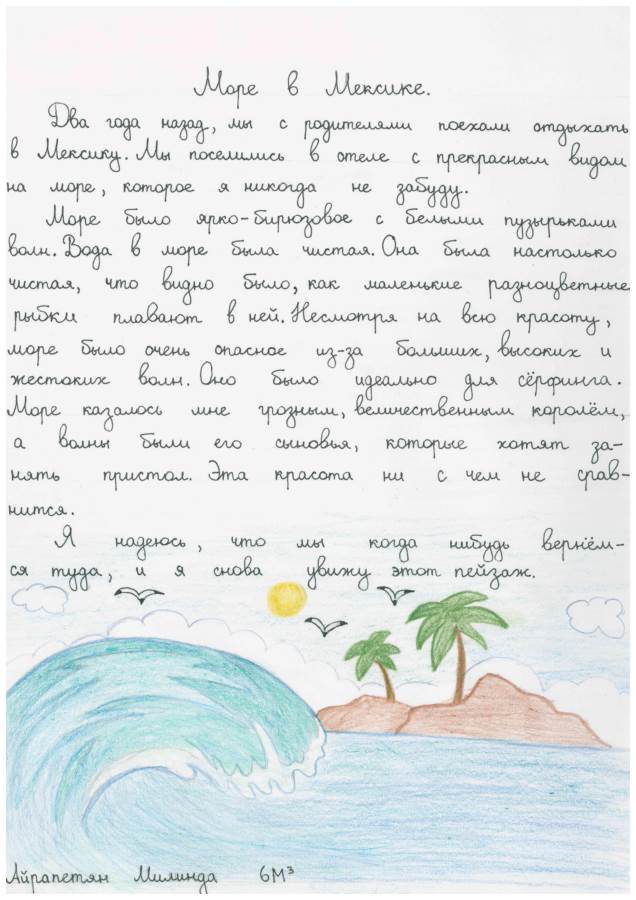 Море в Мексике.
Два года назад, мы с родителями поехали отдыхать
в Мексику. Мы поселились в отеле с прекрасным видом
на море, которое я никогда не забуду.
Море было ярко-бирюзовое с белыми пузырьками
волн. Вода в море была чистая. Она была настолько
чистая, что видно было, как маленькие разноцветные
рыбки плавают в ней. Несмотря на всю красоту,
море было очень опасное из-за больших, высоких и
жестоких волн. Оно было идеально для сёрфинга.
Море казалось мне грозным, величественным королём,
а волны были его сыновья, которые хотят за-
нять пристол. Эта красота ни с чем не срав-
нится.
Я надеюсь, что мы когда нибудь вернём-
ся туда, и я снова увижу этот пейзаж.
Айрапетян Милинда 6М³